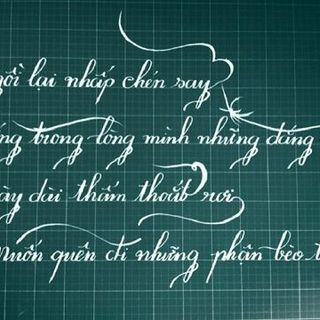 gồi lại nhấp chén say
ng trong lòng mình những đắng
ày dài thấm thoắt rơi
Muốn quên đi những phận bèo t